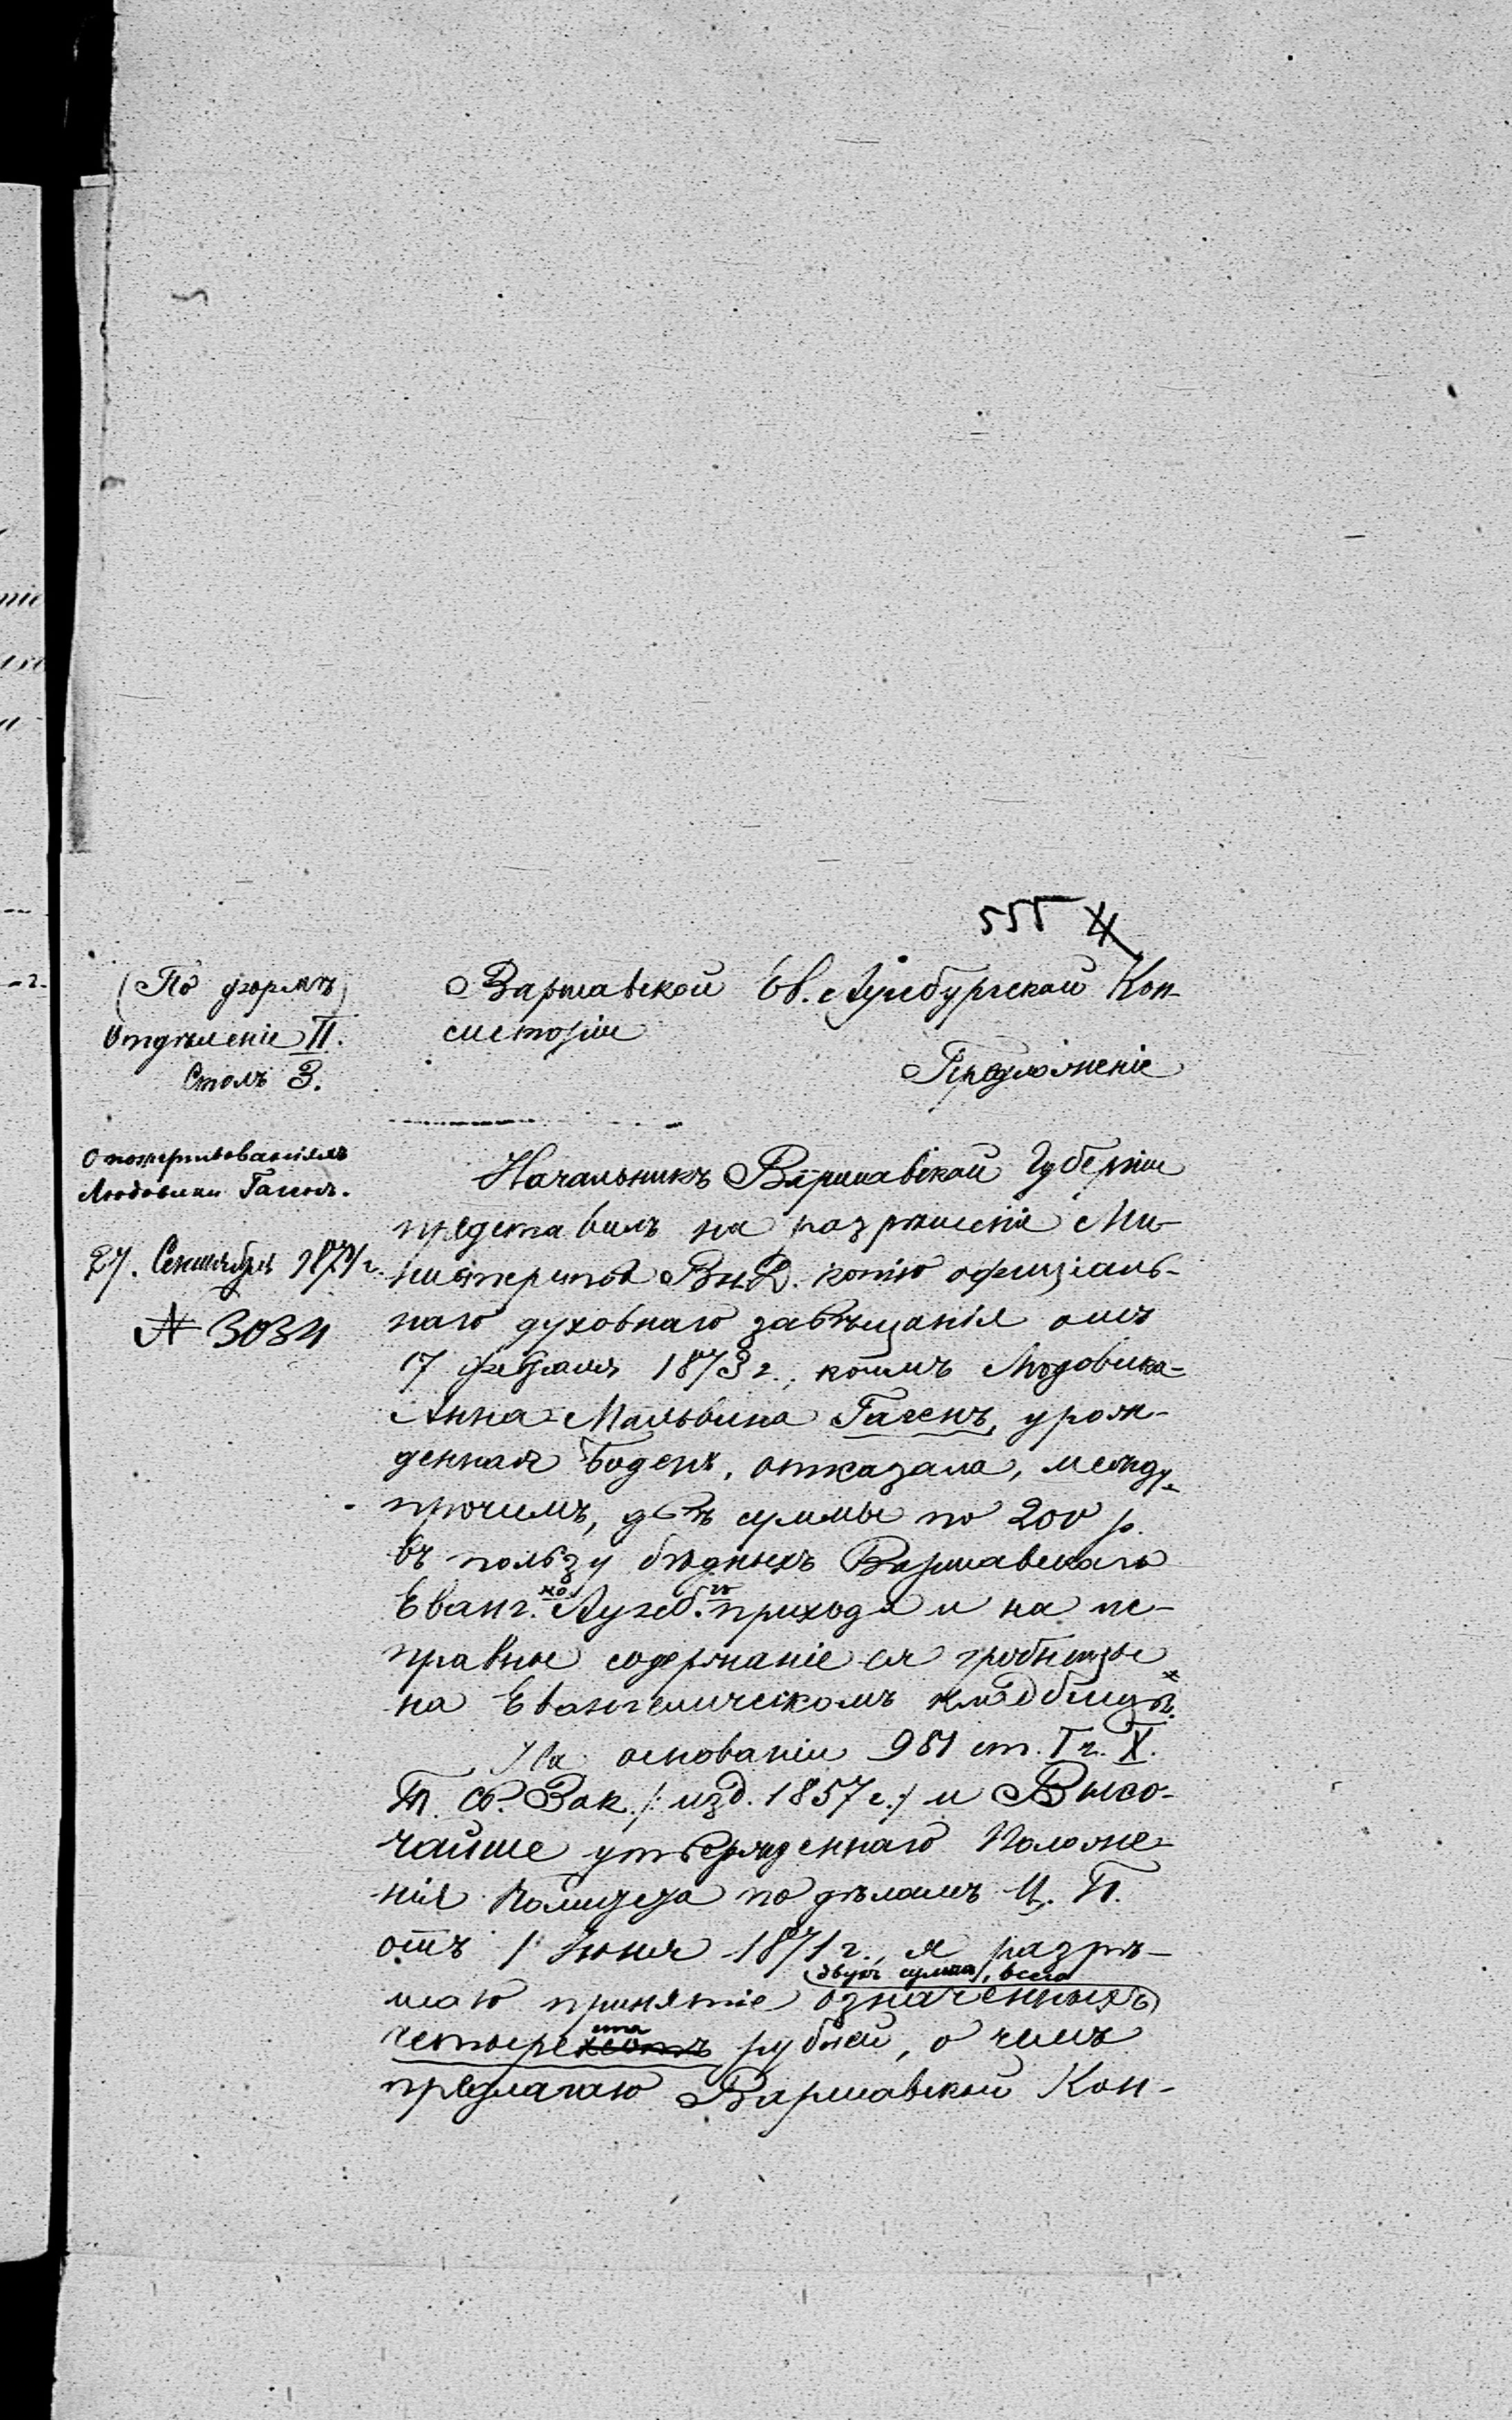 555
(По формѣ)
Отдѣленіе II.
Столъ 3.
О пожертвованіяхъ
Людовики Гаген.
27. Сентября 1874 г.
№ 3034
Варшавской Ев. Аугсбургской Кон-
систоріи
Предложеніе
Начальникъ Варшавской Губерніи
представилъ на разрѣшеніе Ми-
нистерства Вн. Д. копію оффиціаль-
наго духовнаго завѣщанія отъ
17 февраля 1873 г., коимъ Людовика-
Анна-Мальвина Гагенъ, урож-
денная Боденъ, отказала, между
прочимъ, двѣ суммы по 200 р.
въ пользу бѣдныхъ Варшавскаго
Еванг.но Аугсб.го прихода и на ис-
правное содержаніе ея гробницы
на Евангелическомъ кладбищѣ.
На основаніи 981 ст. I ч. X.
Т. Св. Зак. /: изд. 1857 г. :/ и Высо-
чайше утвержденнаго Положе-
нія Комитета по дѣламъ Ц. П.
отъ 1 Іюня 1871 г., я разрѣ-
шаю принятіе означенныхъ
двухъ суммъ, всего
четырехсотъ ста рублей, о чемъ
предлагаю Варшавской Кон-